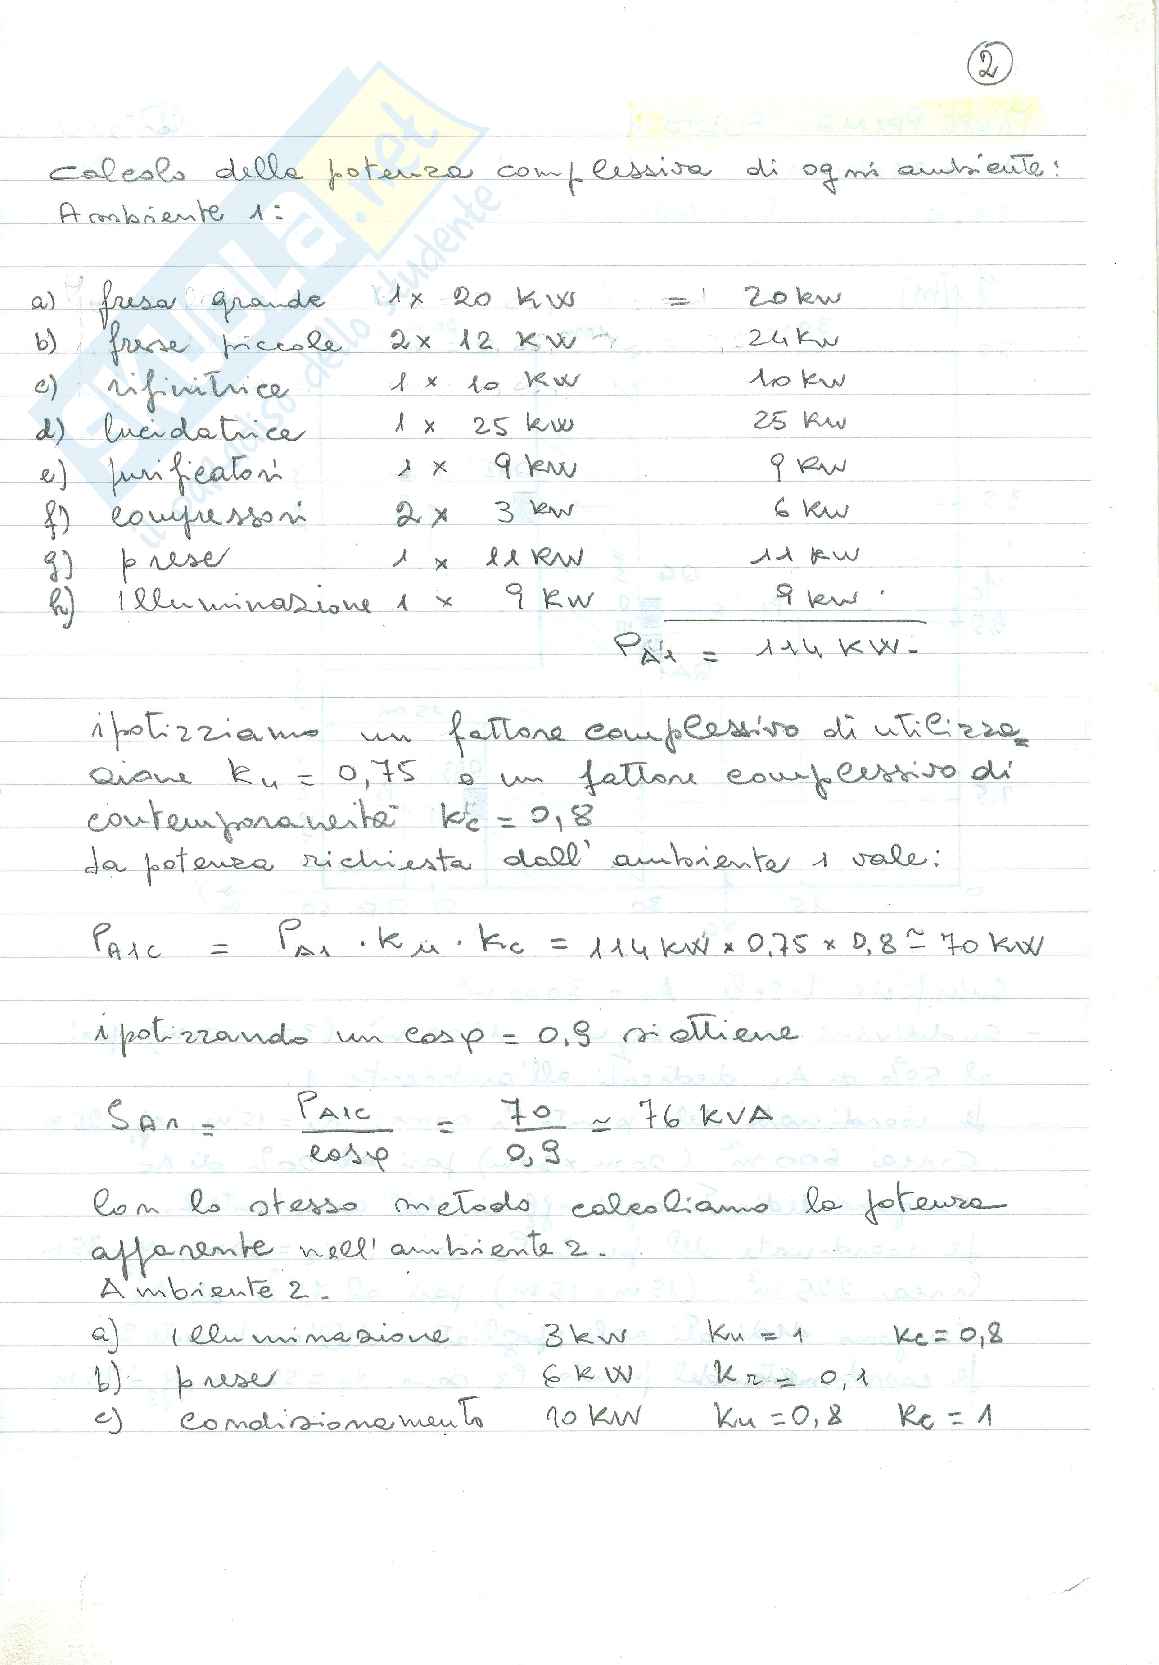 2
calcolo della potenza complessiva di ogni ambiente:
Ambiente 1:
a) fresa grande 1 x 20 KW = 20 kW
b) frese piccole 2 x 12 KW 24 KW
c) rifinitrice 1 x 10 KW 10 KW
d) lucidatrice 1 x 25 KW 25 KW
e) purificatori 1 x 9 KW 9 KW
f) compressori 2 x 3 KW 6 KW
g) prese 1 x 11 KW 11 KW
h) illuminazione 1 x 9 KW 9 KW
PA1 = 114 KW.
ipotizziamo un fattore complessivo di utilizza
zione Ku = 0,75 e un fattore complessivo di
contemporaneità Kc = 0,8
La potenza richiesta dall' ambiente 1 vale:
PA1C = PA1 · Ku · Kc = 114 KW x 0.75 x 0,8 ≃ 70 KW
ipotizzando un cosφ = 0,9 si ottiene
SA1 = PA1C / cosφ = 70 / 0,9 ≃ 76 KVA
Con lo stesso metodo calcoliamo la potenza
apparente nell'ambiente 2.
Ambiente 2.
a) illuminazione 3 kW Ku = 1 Kc = 0,8
b) prese 6 KW Kr = 0,1
c) condizionamento 10 KW Ku = 0,8 Kc = 1
skuola.net
il paradiso dello studente